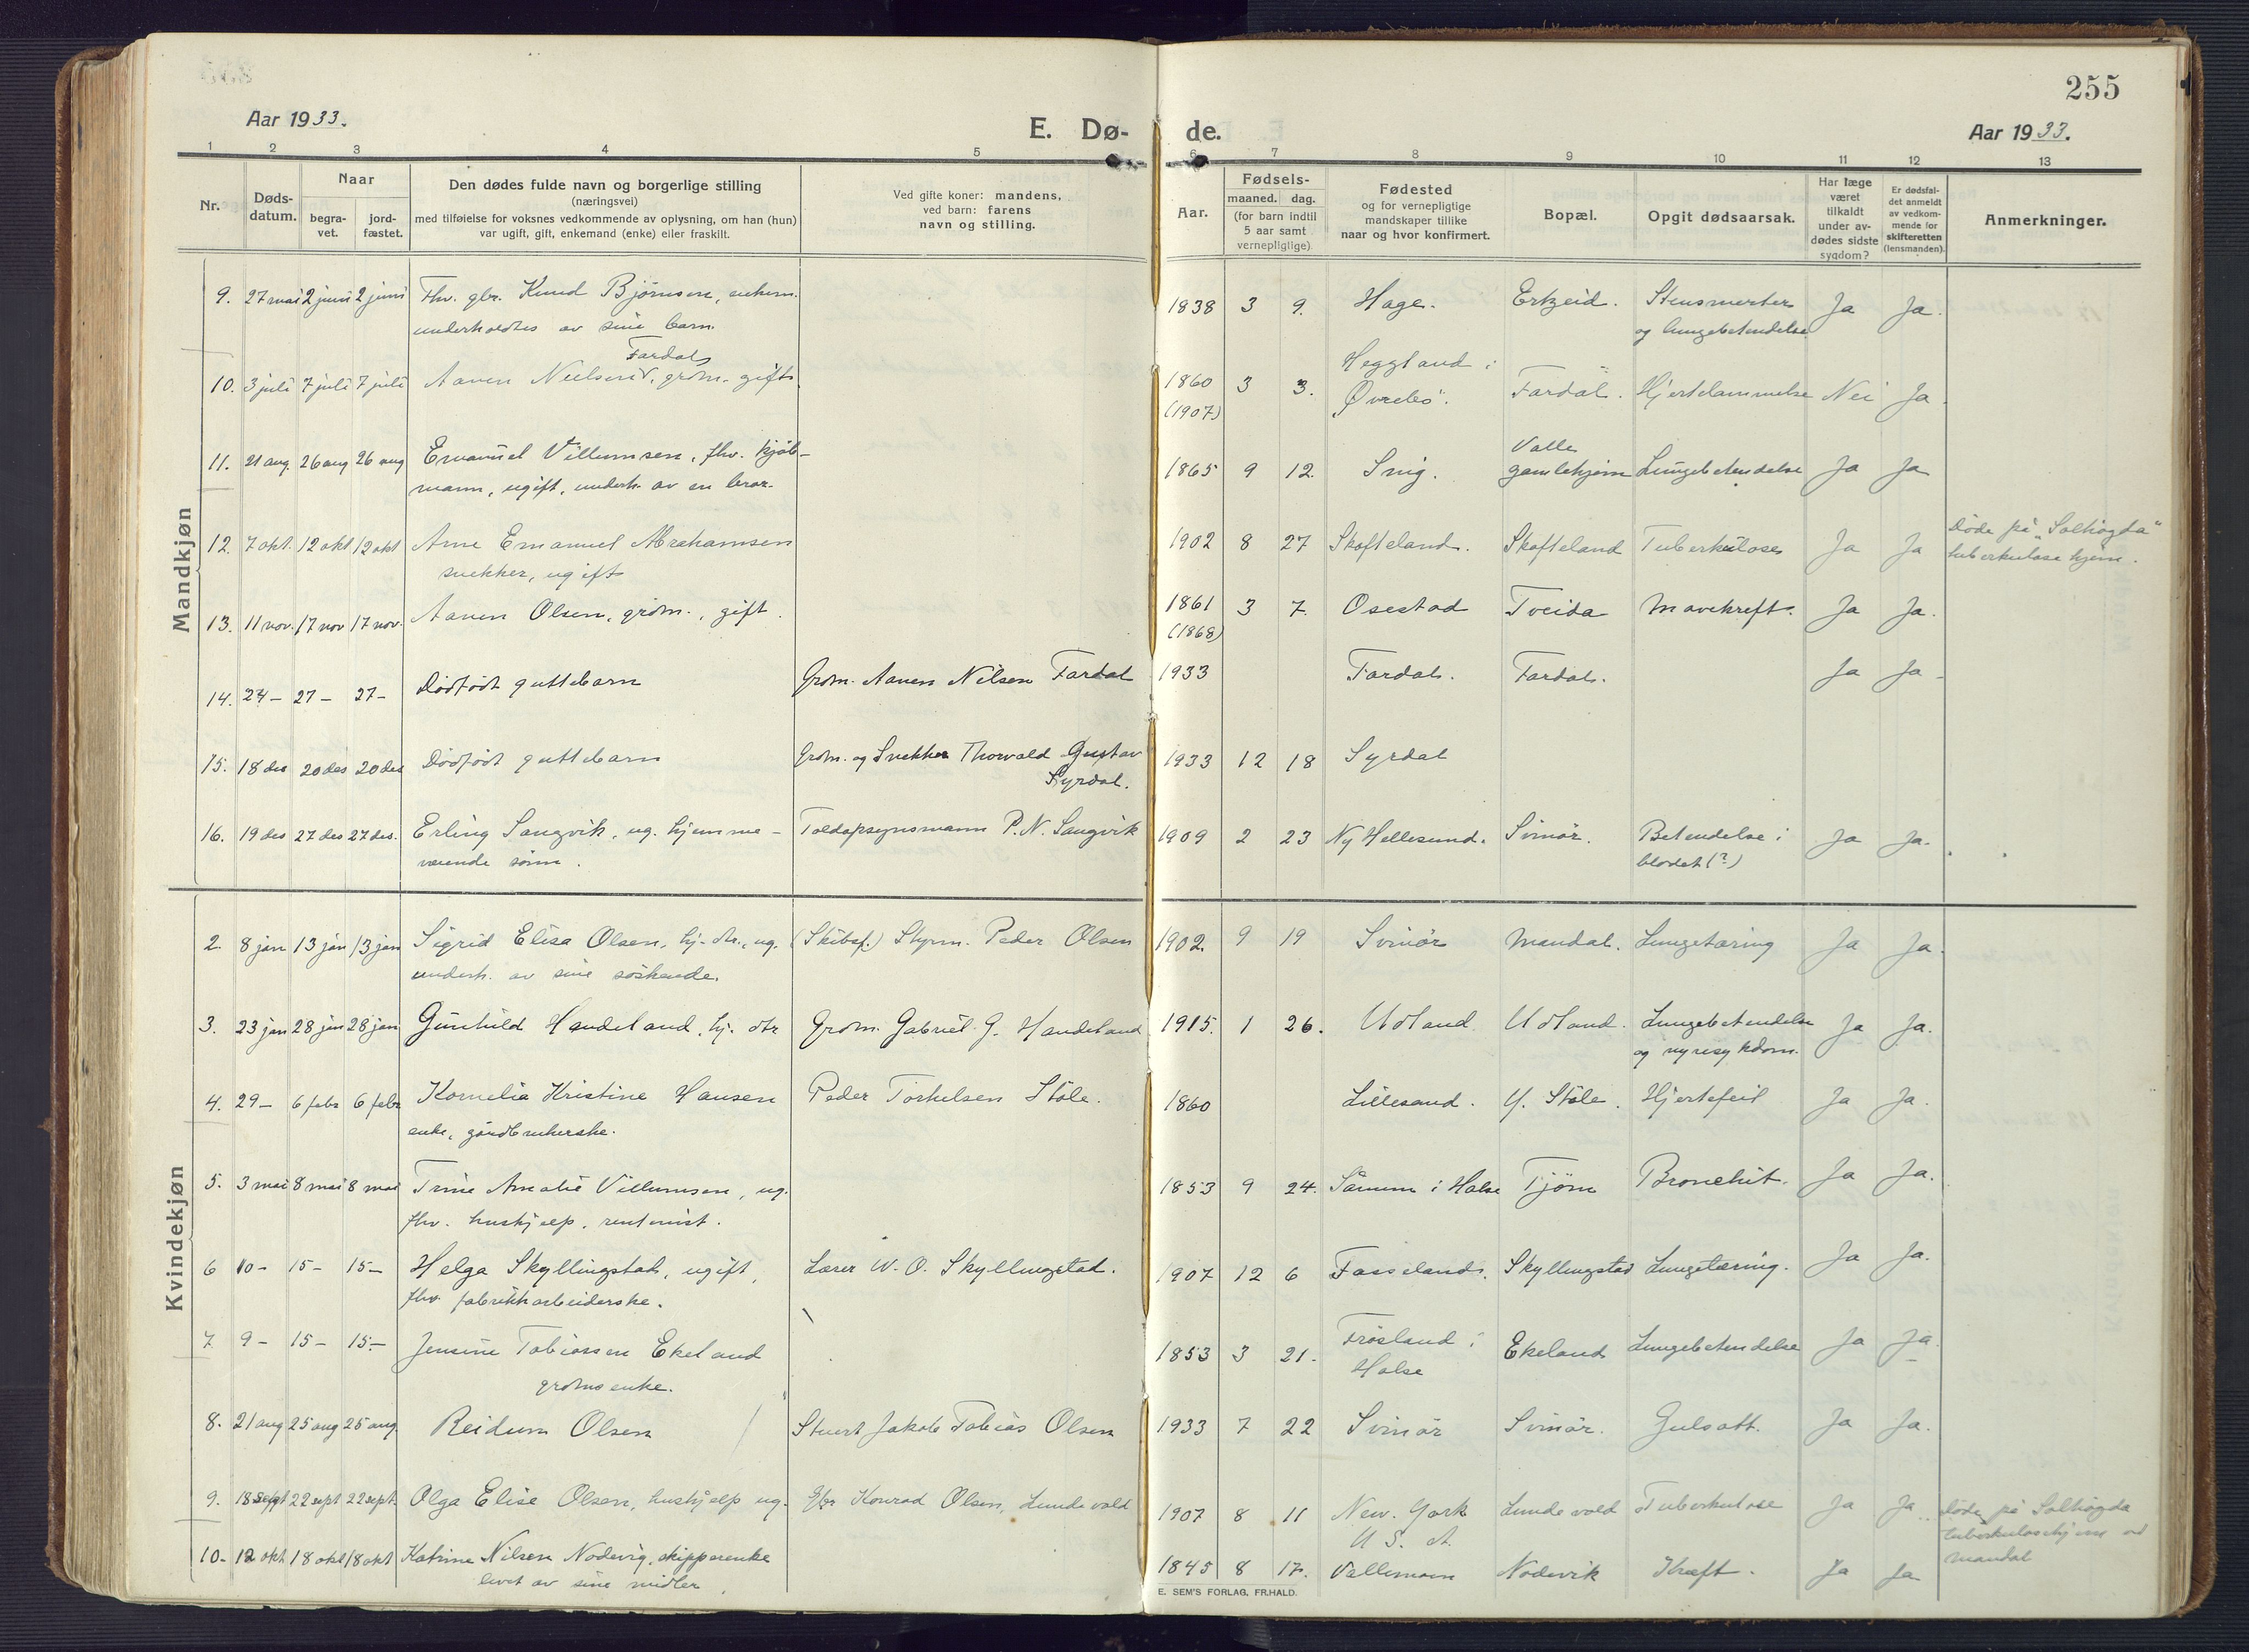 255
Aar 1933.
E. Dø- de.
Aar 1933.
1 2 3 4 5 6 7 8 9 10 11 12 13
Nr.
Døds-
datum.
Naar
begra-
vet.
jord-
fæstet.
Den dødes fulde navn og borgerlige stilling
(næringsvei)
med tilføielse for voksnes vedkommende av oplysning, om han (hun)
var ugift, gift, enkemand (enke) eller fraskilt.
Ved gifte koner: mandens,
ved barn: farens
navn og stilling.
Aar.
Fødsels-
maaned. dag.
(for barn indtil
5 aar samt
vernepligtige)
Fødested
og for vernepligtige
mandskaper tillike
naar og hvor konfirmert.
Bopæl.
Opgit dødsaarsak.
Har læge
været
tilkaldt
under av-
dødes sidste
sygdom?
Er dødsfal-
det anmeldt
av vedkom-
mende for
skifteretten
(lensmanden)
Anmerkninger.
Mandkjøn
9. 27 mai 2 juni 2 juni Fhv. gbr. Knud Bjørnsen, enkem. 1838 3 9. Hage. Erkzeid. Stensmerter Ja Ja.
underholdtes av sine barn. og lungebetendelse
Fardal Heggland i
10. 3 juli 7 juli 7 juli Aanen Nielsen, grdm. gift 1860 3 3. Øvrebø. Fardal. Hjertelammelse Nei Ja
(1907)
11. 21 aug. 26 aug 26 aug Emanuel Villumsen, fhv. kjøb- 1865 9 12. Snig. Valle
gamlehjem Lungebetendelse Ja Ja
mann, ugift, underh. av en bror.
12. 7 okt. 12 okt 12 okt Arne Emanuel Abrahamsen 1902 8 27 Skofteland. Skofteland Tuberkulose Ja Ja Døde på "Solhøgda"
snekker, ugift tuberkulosehjem.
13. 11 nov. 17 nov 17 nov. Aanen Olsen, grdm., gift. 1861 3 7. Osestad Tveida Mavekreft. Ja Ja.
(1868)
14. 24 - 27 - 27 - Dødfødt guttebarn Grdm. Aanen Nilsen Fardal 1933 Fardal. Fardal. Ja Ja
15. 18 des 20 des 20 des Dødfødt guttebarn Grdm. og Snekker Thorvald Gustav 1933 12 18 Syrdal
Syrdal.
16. 19 des 27 des 27 des. Erling Sangvik, ug. hjemme- Toldopsynsmann P. N. Sangvik 1909 2 23 Ny Hellesund. Svinør. Betendelse i Ja Ja.
værende sønn. blodet (?)
Kvindekjøn
2. 8 jan 13 jan 13 jan Sigrid Elisa Olsen, hj. dtr., ug. (Skibsf.) Styrm. Peder Olsen 1902. 9 19 Svinør Mandal. Lungetæring Ja Ja.
underh. av sine søskende.
3. 23 jan 28 jan 28 jan Gunhild Handeland, hj. dtr Grdm. Gabriel G. Handeland 1915. 1 26. Udland Udland. Lungebetendelse Ja Ja.
og nyresykdom.
4. 29 - 6 febr 6 febr Kornelia Kristine Hansen Peder Torkelsen Støle. 1860 Lillesand. Y. Støle. Hjertefeil Ja Ja.
enke, gårdbrukerske.
5. 3 mai 8 mai 8 mai Trine Amalie Villumsen, ug. 1853 9 24. Sånum i Halse Tjøm Bronchit. Ja Ja.
fhv. hushjelp, rentenist.
6 10 - 15 - 15 - Helga Skyllingstad, ugift, Lærer W. O. Skyllingstad. 1907 12 6 Fasseland. Skyllingstad Lungetæring. Ja Ja.
fhv. fabrikkarbeiderske.
7 9 - 15 - 15 - Jensine Tobiassen Ekeland 1853 3 21. Frøsland i Ekeland Lungebetendelse Ja Ja
grdms enke. Halse
8. 21 aug 25 aug 25 aug. Reidun Olsen Stuert Jakob Tobias Olsen 1933 7 22 Svinør Svinør. Gulsott. Ja Ja.
9. 18 sept 22 sept 22 sept. Olga Elise Olsen, hushjelp ug. Gbr Konrad Olsen, Lundevold 1907 8 11 New. York Lundevold Tuberkulose Ja Ja. Døde på Solhøgda
U S. A. tuberkulosehjem ved
Mandal
10. 12 okt 18 okt 18 okt Katrine Nilsen Nodevig, skipperenke 1845 8 17. Vallemoen Nodevik Kræft. Ja Ja
levet av sine midler.
E. SEM'S FORLAG, FR.HALD.